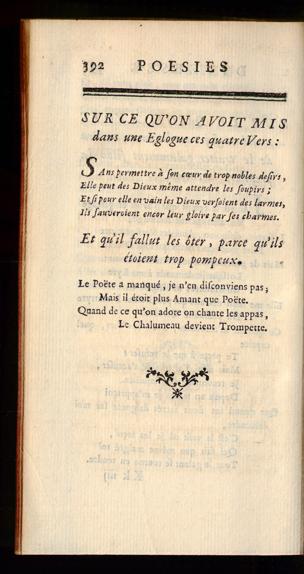 392 POESIES
SUR CE QU'ON AVOIT MIS
dans une Eglogue ces quatre Vers :
SAns permettre à son cœur de trop nobles desirs,
Elle peut des Dieux même attendre les soupirs ;
Et si pour elle en vain les Dieux versoient des larmes,
Ils sauveroient encor leur gloire par ses charmes.
Et qu'il fallut les ôter, parce qu'ils
étoient trop pompeux.
Le Poëte a manqué, je n'en disconviens pas ;
Mais il étoit plus Amant que Poëte.
Quand de ce qu'on adore on chante les appas,
Le Chalumeau devient Trompette.